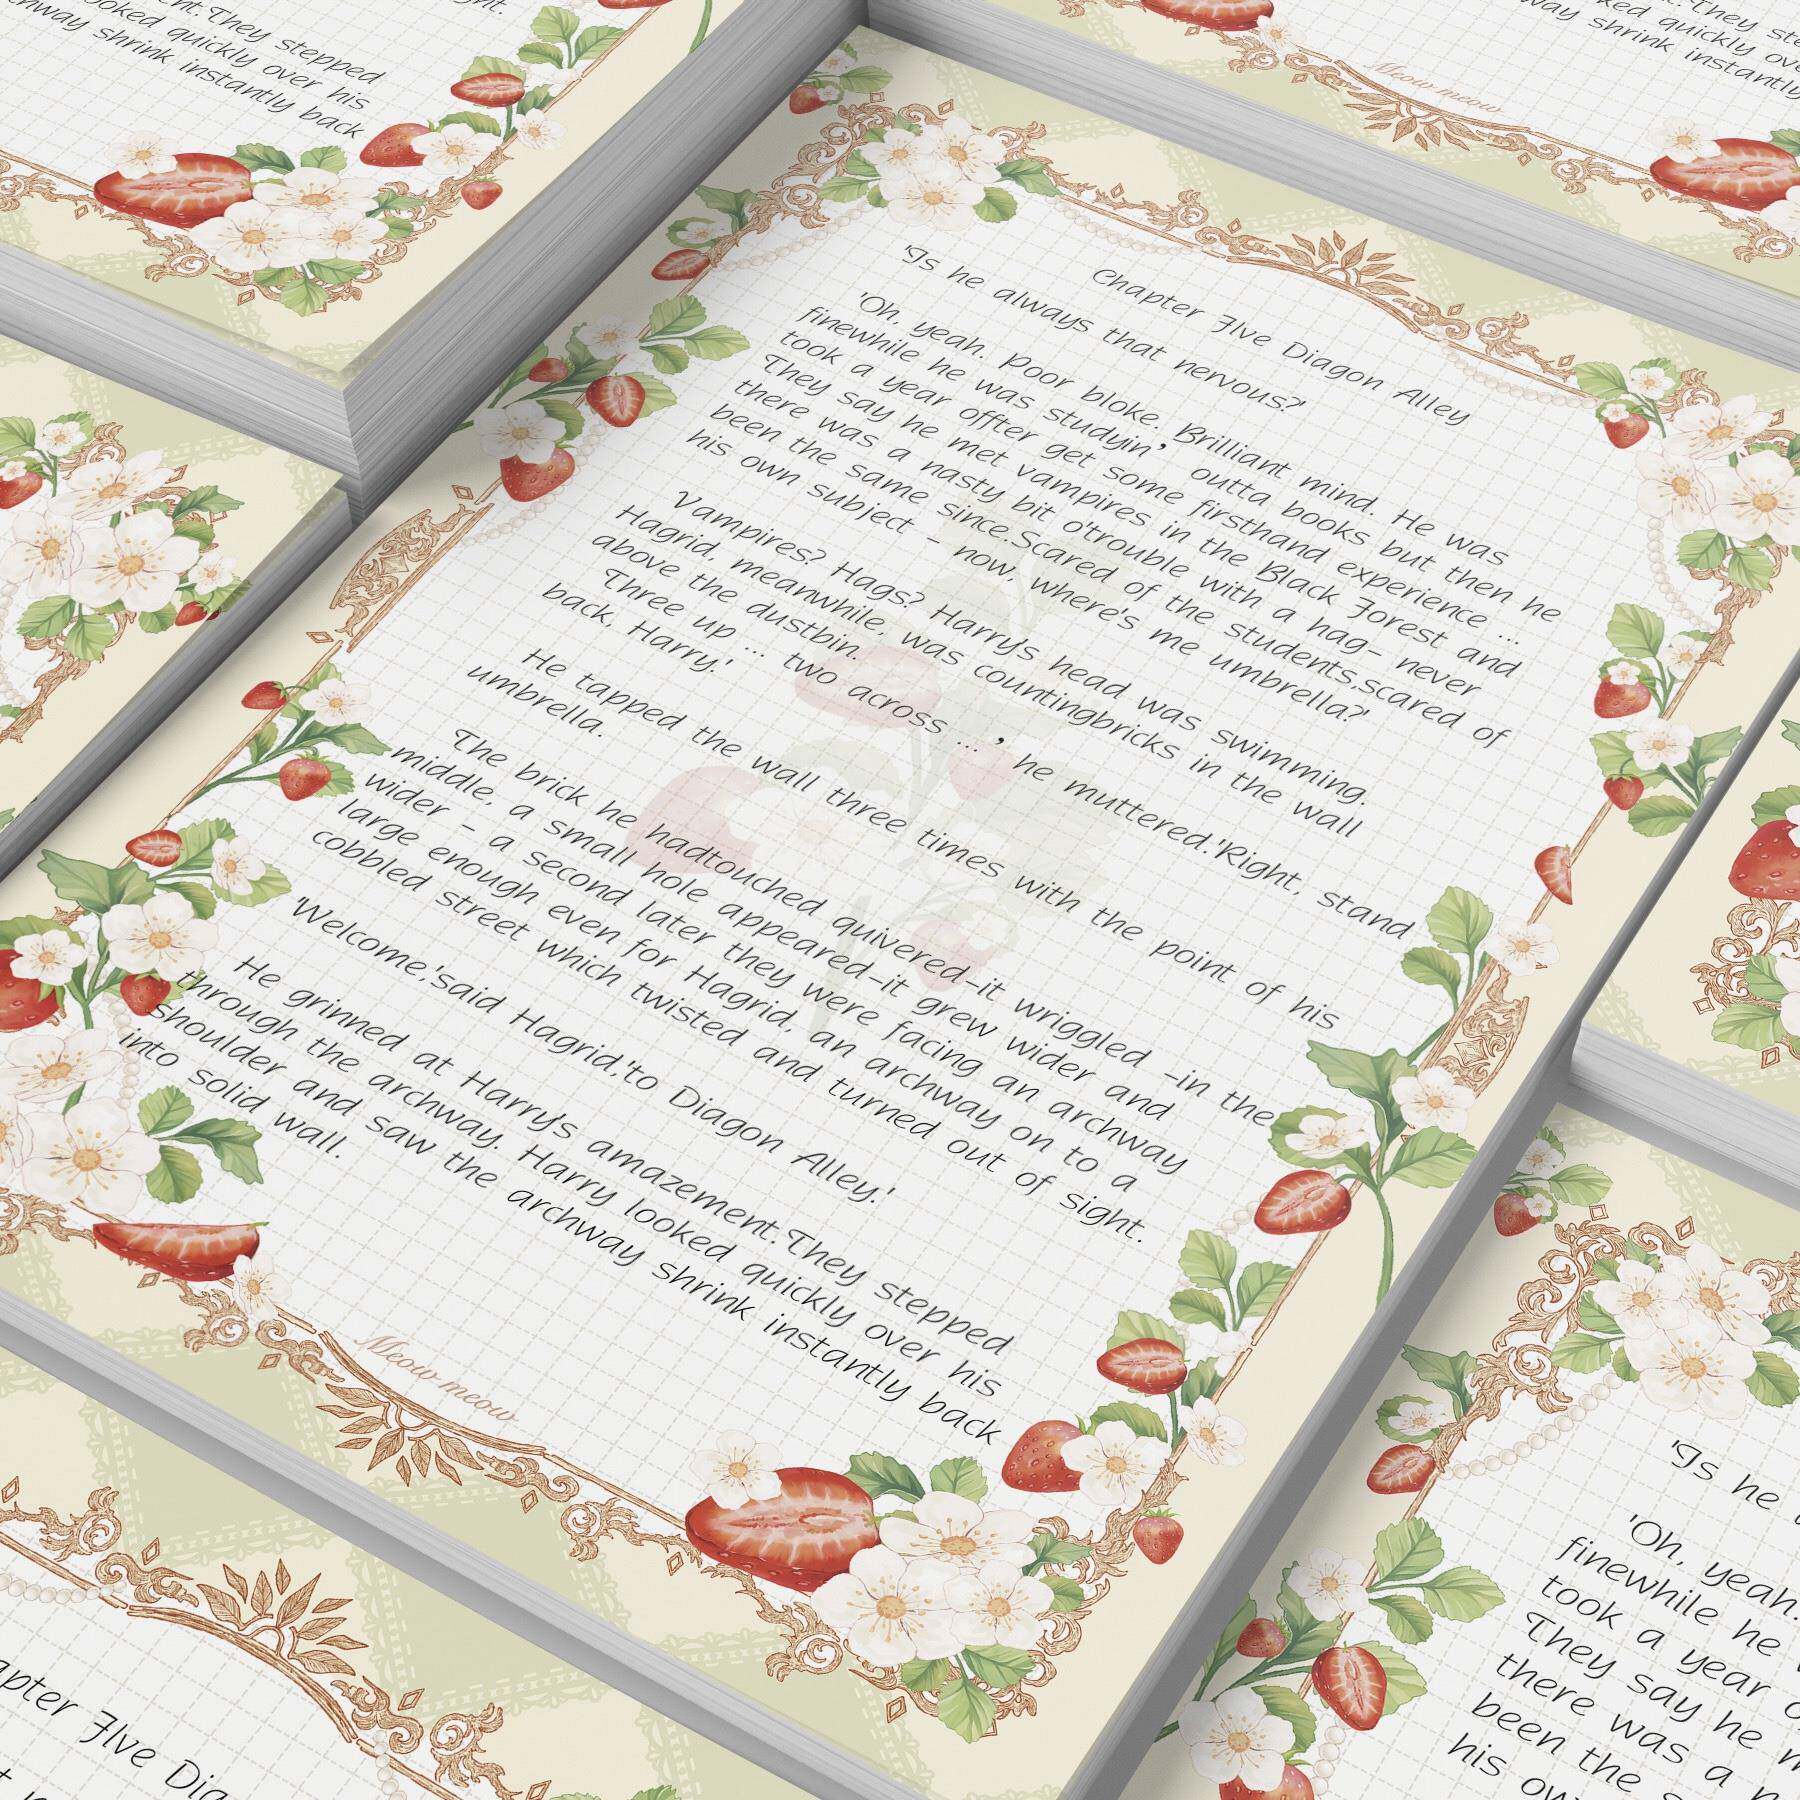 Chapter FIve Diagon Alley
'Is he always that nervous?'
'Oh, yeah. Poor bloke. Brilliant mind. He was
finewhile he was studyin' outta books but then he
took a year offter get some firsthand experience ...
They say he met vampires in the Black Forest and
there was a nasty bit o'trouble with a hag- never
been the same since.Scared of the students,scared of
his own subject - now, where's me umbrella?'
Vampires? Hags? Harry's head was swimming.
Hagrid, meanwhile, was countingbricks in the wall
above the dustbin.
Three up ... two across ... ' he muttered.'Right, stand
back, Harry.'
He tapped the wall three times with the point of his
umbrella.
The brick he hadtouched quivered-it wriggled -in the
middle, a small hole appeared-it grew wider and
wider - a second later they were facing an archway
large enough even for Hagrid, an archway on to a
cobbled street which twisted and turned out of sight.
'Welcome,'said Hagrid,'to Diagon Alley.'
He grinned at Harry's amazement.They stepped
through the archway. Harry looked quickly over his
shoulder and saw the archway shrink instantly back
into solid wall.
Meow meow